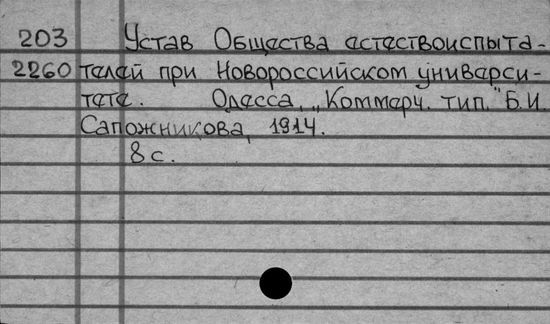 203 Устав Общества естествоиспыта-
2260 телей при Новороссийском универси-
тете. Одесса, „Коммерч. тип." Б.И.
Сапожникова, 1914.
8 с.